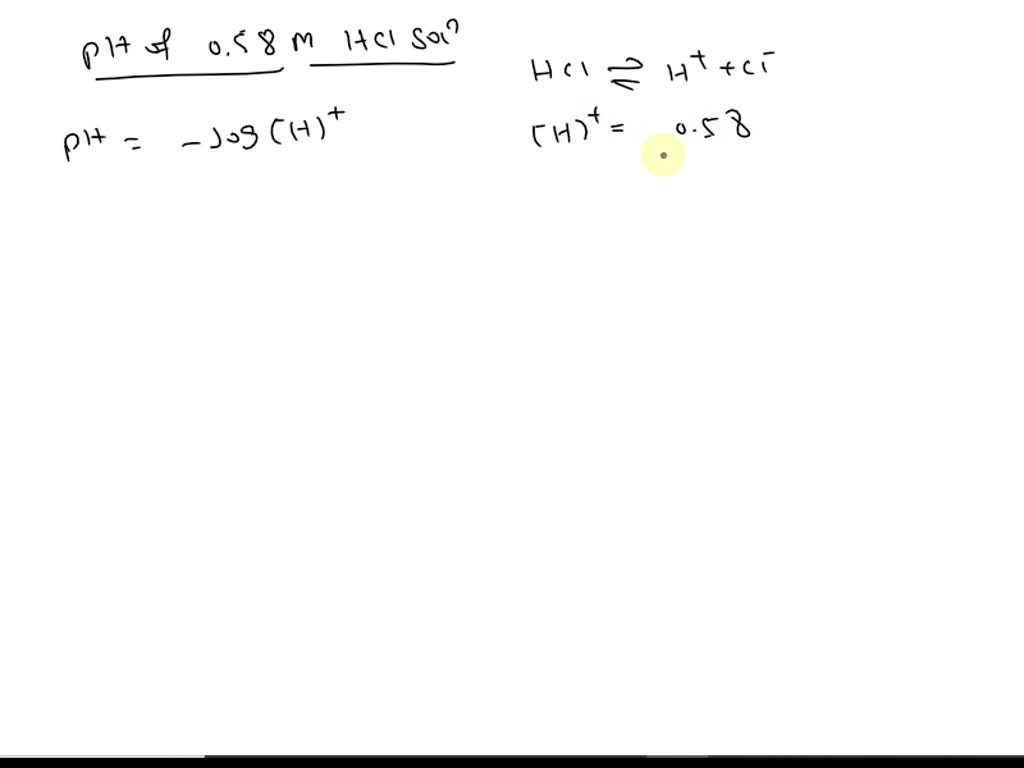 pH of 0.58 M HCl Solⁿ
pH = -log (H)⁺
HCl ⇌ H⁺ + Cl⁻
(H)⁺ = 0.58